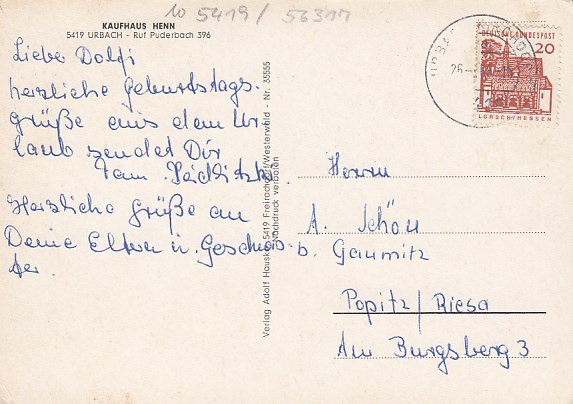 10 5419 / 56317
KAUFHAUS HENN
5419 URBACH - Ruf Puderbach 396
Liebe Dolfi
herzliche Geburtstags-
grüße aus dem Ur
laub sendet Dir
Fam.
Herzliche Grüße an
Deine Eltern u. Geschwis-
ter.
Verlag Adolf 5419 Freirachdorf/Westerwald - Nr. 33555
Nachdruck verboten
DEUTSCHE BUNDESPOST
20
LORSCH/HESSEN
Herrn
A. Schön
b. Gaumitz
Popitz/Riesa
Am Burgsberg 3